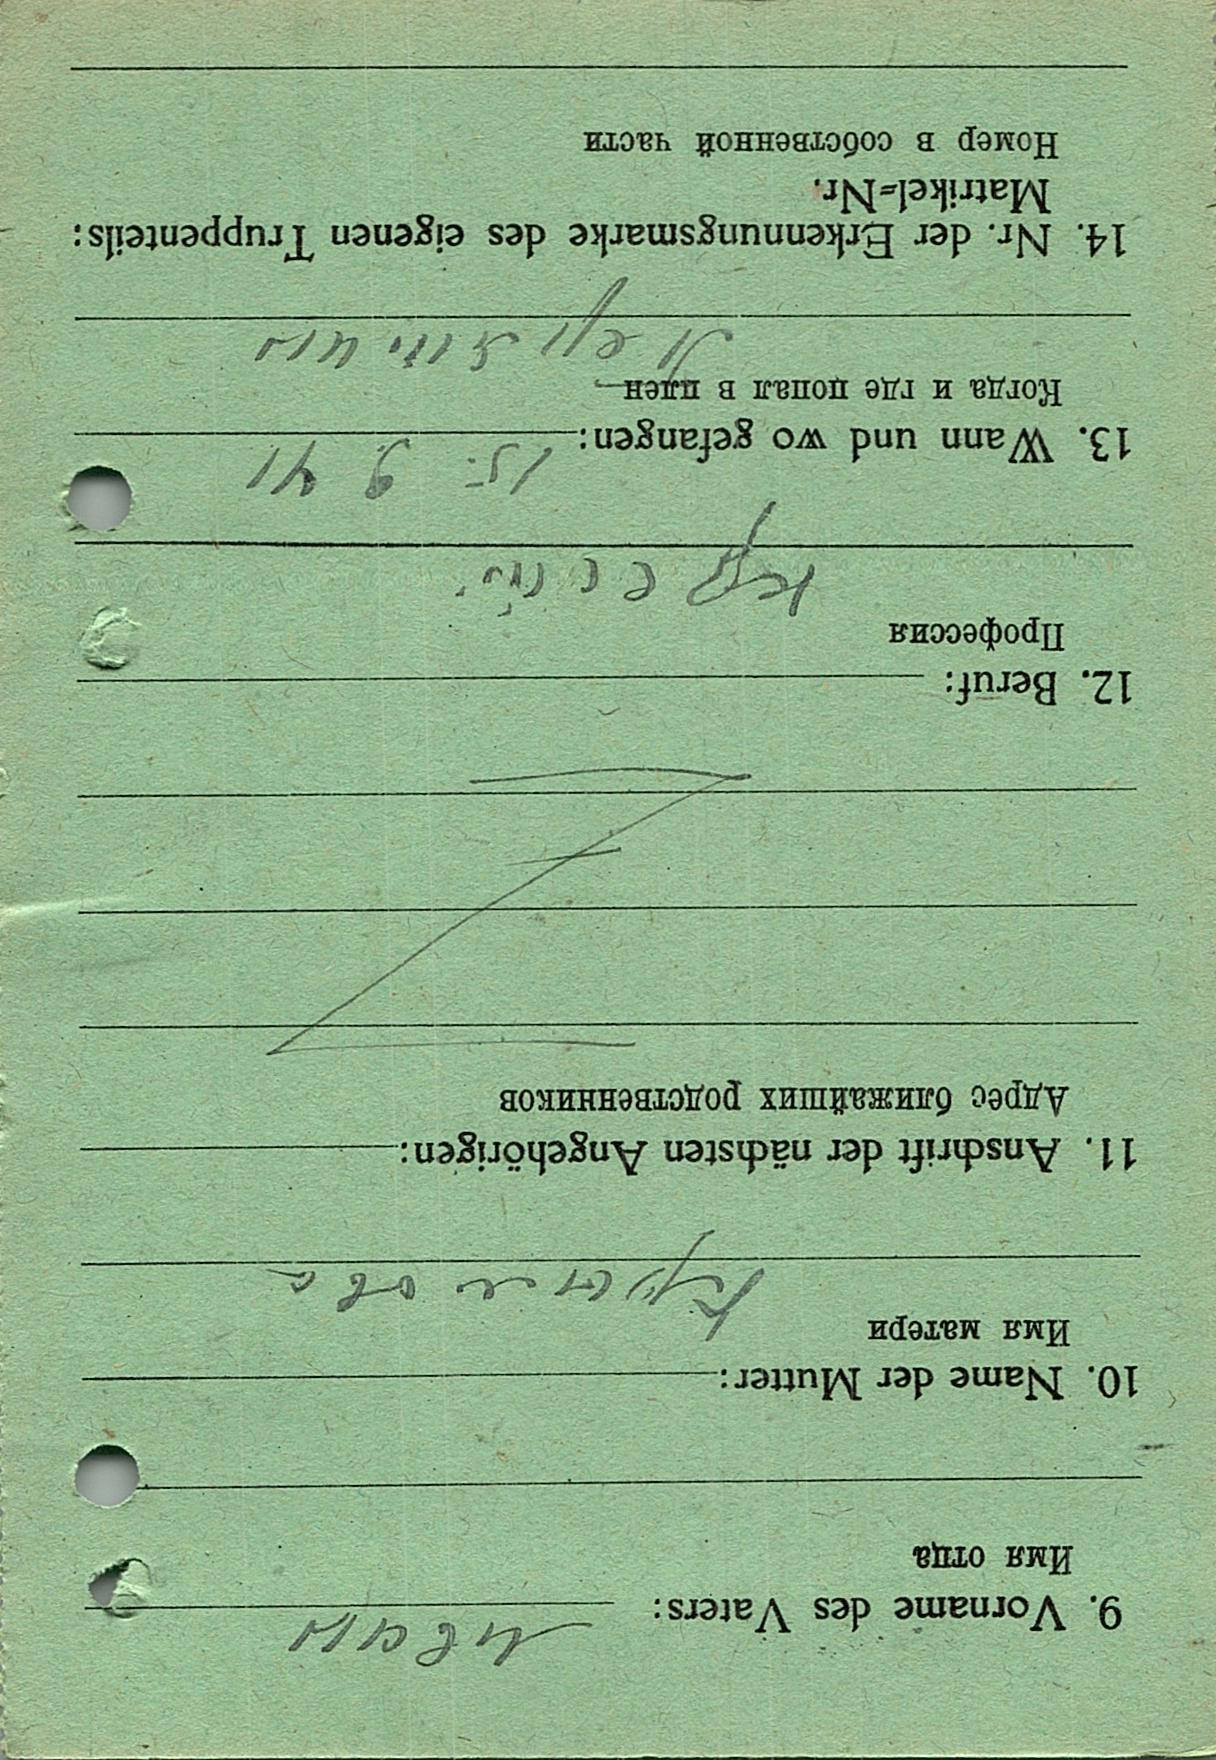 9. Vorname des Vaters: Иван
Имя отца
10. Name der Mutter:
Имя матери
11. Anschrift der nächsten Angehörigen:
Адрес ближайших родственников
12. Beruf:
Профессия
13. Wann und wo gefangen: 15 9 41
Когда и где попал в плен
14. Nr. der Erkennungsmarke des eigenen Truppenteils:
Matrikel=Nr.
Номер в собственной части